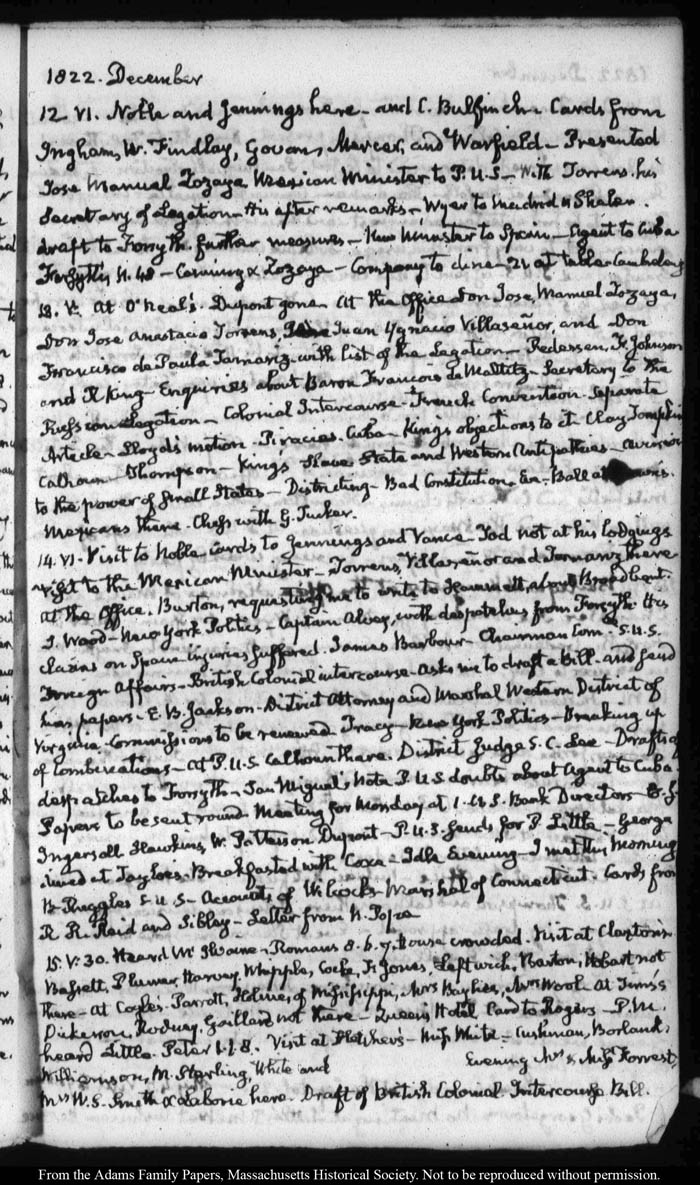 1822. December
12 VI. Noble and Jennings here - and C. Bulfinch - Cards from
Ingham, W. Findlay, Govan, Mercer, and Warfield - Presented
Jose Manuel Zozaya Mexican Minister to P.U.S - with Torrens his
Secretary of Legation - His after remarks - Wyer to Madrid
draft to Forsyth. further measures - New Minister to Spain - Agent to Cuba
Forsyth's N. 40 - Canning & Zozaya - Company to dine - 21 at table
13. V. At O'Neal's. Dupont gone. At the Office Don Jose, Manuel Zozaya,
Don Jose Anastacio Torrens, Juan Ygnacio Villaseñor, and Don
Francisco de Paula Tamariz - with list of the Legation - Pedersen, Fr. Johnson
and R King - Enquiries about Baron Francois de Maltitz - Secretary to the
Russian Legation - Colonial Intercourse - French Convention - Separate
Article - Lloyd's motion. Piracies. Cuba - King's objections to it Clay Tompkins
Calhoun Thompson - King's Slave State and Western Antipathies - aversion
to the power of small States - Districting - Bad Constitution. Ev. Ball at
Mexicans there - Chess with G. Tucker.
14. VI. Visit to Noble. Cards to Jennings and Vance - Tod not at his lodgings
visit to the Mexican Minister - Torrens, Villaseñor and Tamariz there
At the Office. Burton, requesting me to write to Hammett, about Broadbent.
S. Wood - New York Politics - Captain with despatches from Forsyth. His
claims on Spain injuries suffered. James Barbour - Chairman Com. S.U.S.
Foreign Affairs - British Colonial intercourse - asks me to draft a Bill - and send
him papers - E. B. Jackson - District Attorney and Marshal Western District of
Virginia. Commissions to be renewed Tracy - New York Politics - Breaking up
of Combinations - at P.U.S. Calhoun there. District Judge S.C. Lee - Drafts of
despatches to Forsyth - San Miguel's Note P.U.S doubts about Agent to Cuba
Papers to be sent round Meeting for Monday at 1. U.S. Bank Directors
Ingersoll Hawkins, W. Patterson Dupont - P.U.S. sends for P. Little - George
dined at Tayloe's. Breakfasted with Coxe - Idle Evening - I met this Morning
B Ruggles S.U.S - Accounts of Wilcocks Marshal of Connecticut. Cards from
R. R. Reid and Sibley - Letter from N. Pope
15. V:30. Heard Mr Sloane - Romans 8. 6. 7. House crowded. Visit at Claxton's
Bassett, Plumer, Harvey, Whipple, Cocke, Fr. Jones, Leftwich, Barton, Hobart not
there - at Coyle's - Parrott, Holmes, of Mississippi, Mrs Baylies, Mrs Wool - At Tims's
Dickerson, Rodney, Gaillard not there - Queen's Hotel Card to Rogers - P.M.
heard Little. Peter 1.1.8. Visit at Fletcher's - Miss White - Cushman, Borland,
Williamson, M. Sterling, White and Evening Mrs & Miss Forrest,
Mrs W. S. Smith & Laborie here. Draft of British Colonial Intercourse Bill.
From the Adams Family Papers, Massachusetts Historical Society. Not to be reproduced without permission.